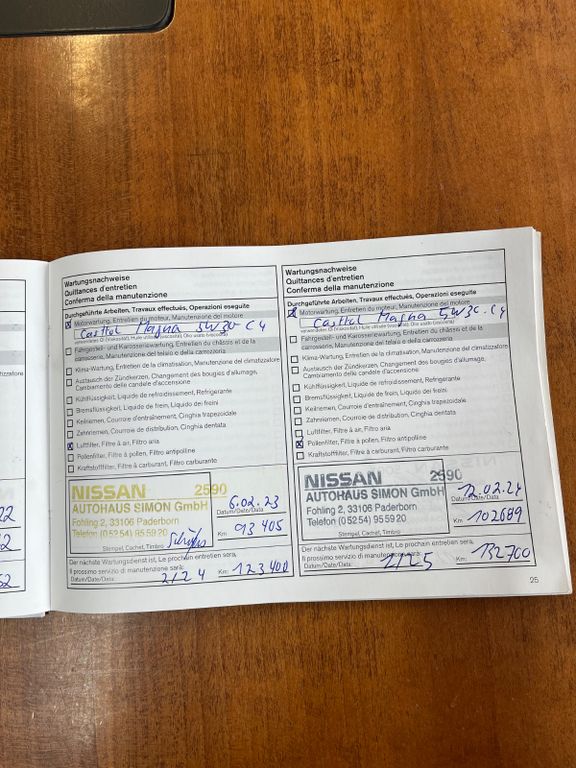 Wartungsnachweise
Quittances d'entretien
Conferma della manutenzione
Durchgeführte Arbeiten, Travaux effectués, Operazioni eseguite
Motorwartung, Entretien du moteur, Manutenzione del motore
Castrol Magna 5W30 C4
Fahrgestell- und Karosseriewartung, Entretien du châssis et de la
carrosserie, Manutenzione del telaio e della carrozzeria
Klima-Wartung, Entretien de la climatisation, Manutenzione del climatizzatore
Austausch der Zündkerzen, Changement des bougies d'allumage,
Cambiamento delle candele d'accensione
Kühlflüssigkeit, Liquide de refroidissement, Refrigerante
Bremsflüssigkeit, Liquide de frein, Liquido dei freini
Keilriemen, Courroie d'entraînement, Cinghia trapezoidale
Zahnriemen, Courroie de distribution, Cinghia dentata
Luftfilter, Filtre à air, Filtro aria
Pollenfilter, Filtre à pollen, Filtro antipolline
Kraftstofffilter, Filtre à carburant, Filtro carburante
NISSAN 2590
AUTOHAUS SIMON GmbH
Fohling 2, 33106 Paderborn
Telefon (05254) 955920
Stempel, Cachet, Timbro
6.02.23
Datum/Date/Data
Km: 93 405
Der nächste Wartungsdienst ist, Le prochain entretien sera,
Il prossimo servizio di manutenzione sarà:
Datum/Date/Data: 2/24 Km: 123 400
Wartungsnachweise
Quittances d'entretien
Conferma della manutenzione
Durchgeführte Arbeiten, Travaux effectués, Operazioni eseguite
Motorwartung, Entretien du moteur, Manutenzione del motore
Castrol Magna 5W30 C4
Fahrgestell- und Karosseriewartung, Entretien du châssis et de la
carrosserie, Manutenzione del telaio e della carrozzeria
Klima-Wartung, Entretien de la climatisation, Manutenzione del climatizzatore
Austausch der Zündkerzen, Changement des bougies d'allumage,
Cambiamento delle candele d'accensione
Kühlflüssigkeit, Liquide de refroidissement, Refrigerante
Bremsflüssigkeit, Liquide de frein, Liquido dei freini
Keilriemen, Courroie d'entraînement, Cinghia trapezoidale
Zahnriemen, Courroie de distribution, Cinghia dentata
Luftfilter, Filtre à air, Filtro aria
Pollenfilter, Filtre à pollen, Filtro antipolline
Kraftstofffilter, Filtre à carburant, Filtro carburante
NISSAN 2590
AUTOHAUS SIMON GmbH
Fohling 2, 33106 Paderborn
Telefon (05254) 955920
Stempel, Cachet, Timbro
12.02.24
Datum/Date/Data
Km: 102689
Der nächste Wartungsdienst ist, Le prochain entretien sera,
Il prossimo servizio di manutenzione sarà:
Datum/Date/Data: 2/25 Km: 132700
25